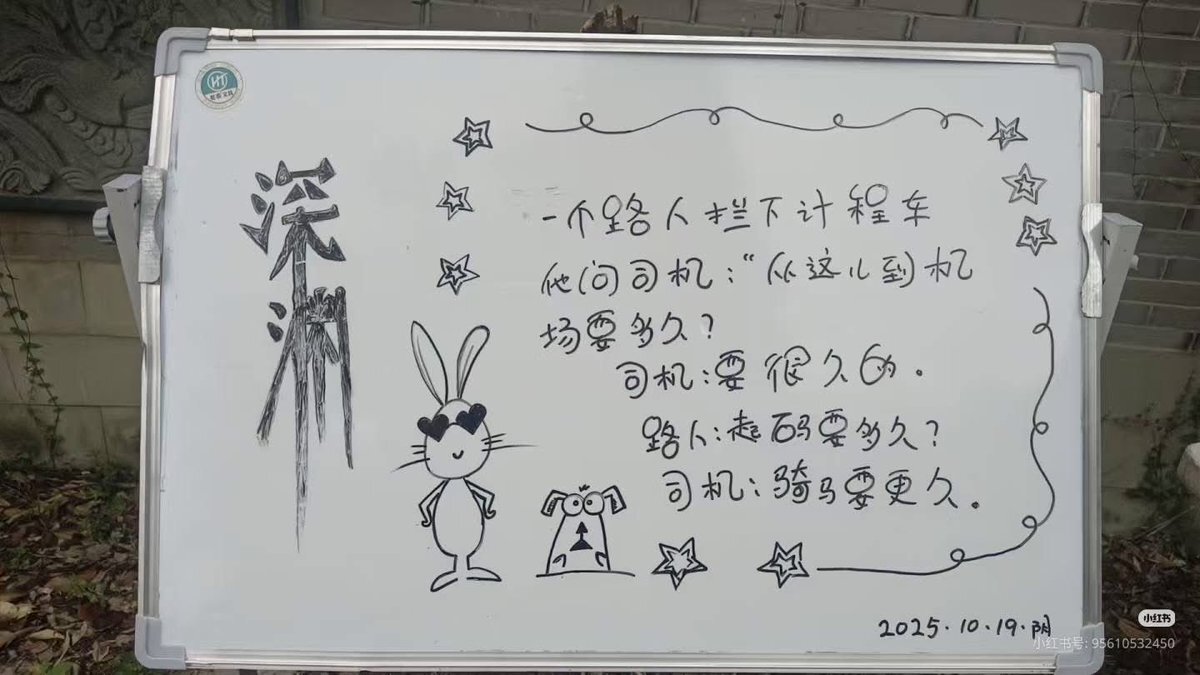 HT
深渊
一个路人拦下计程车
他问司机:“从这儿到机
场要多久?
司机:要很久的.
路人:起码要多久?
司机:骑马要更久.
2025.10.19.阴
小红书
小红书号: 95610532450